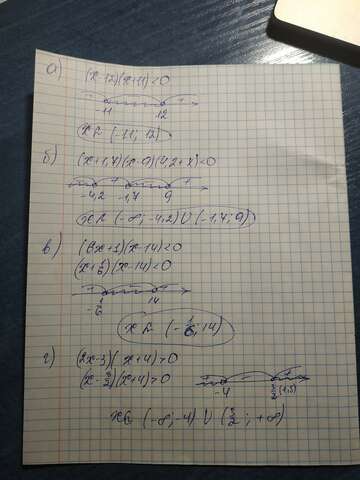 а) (x-12)(x+11)<0
+ - +
-11 12
x ∈ (-11; 12)
б) (x+1,7)(x-9)(4,2+x)<0
- + - +
-4,2 -1,7 9
x ∈ (-∞; -4,2) ∪ (-1,7; 9)
в) (6x+1)(x-14)<0
(x+1/6)(x-14)<0
+ - +
-1/6 14
x ∈ (-1/6; 14)
г) (2x-3)(x+4)>0
(x-3/2)(x+4)>0
+ - +
-4 3/2 (1,5)
x ∈ (-∞; -4) ∪ (3/2; +∞)